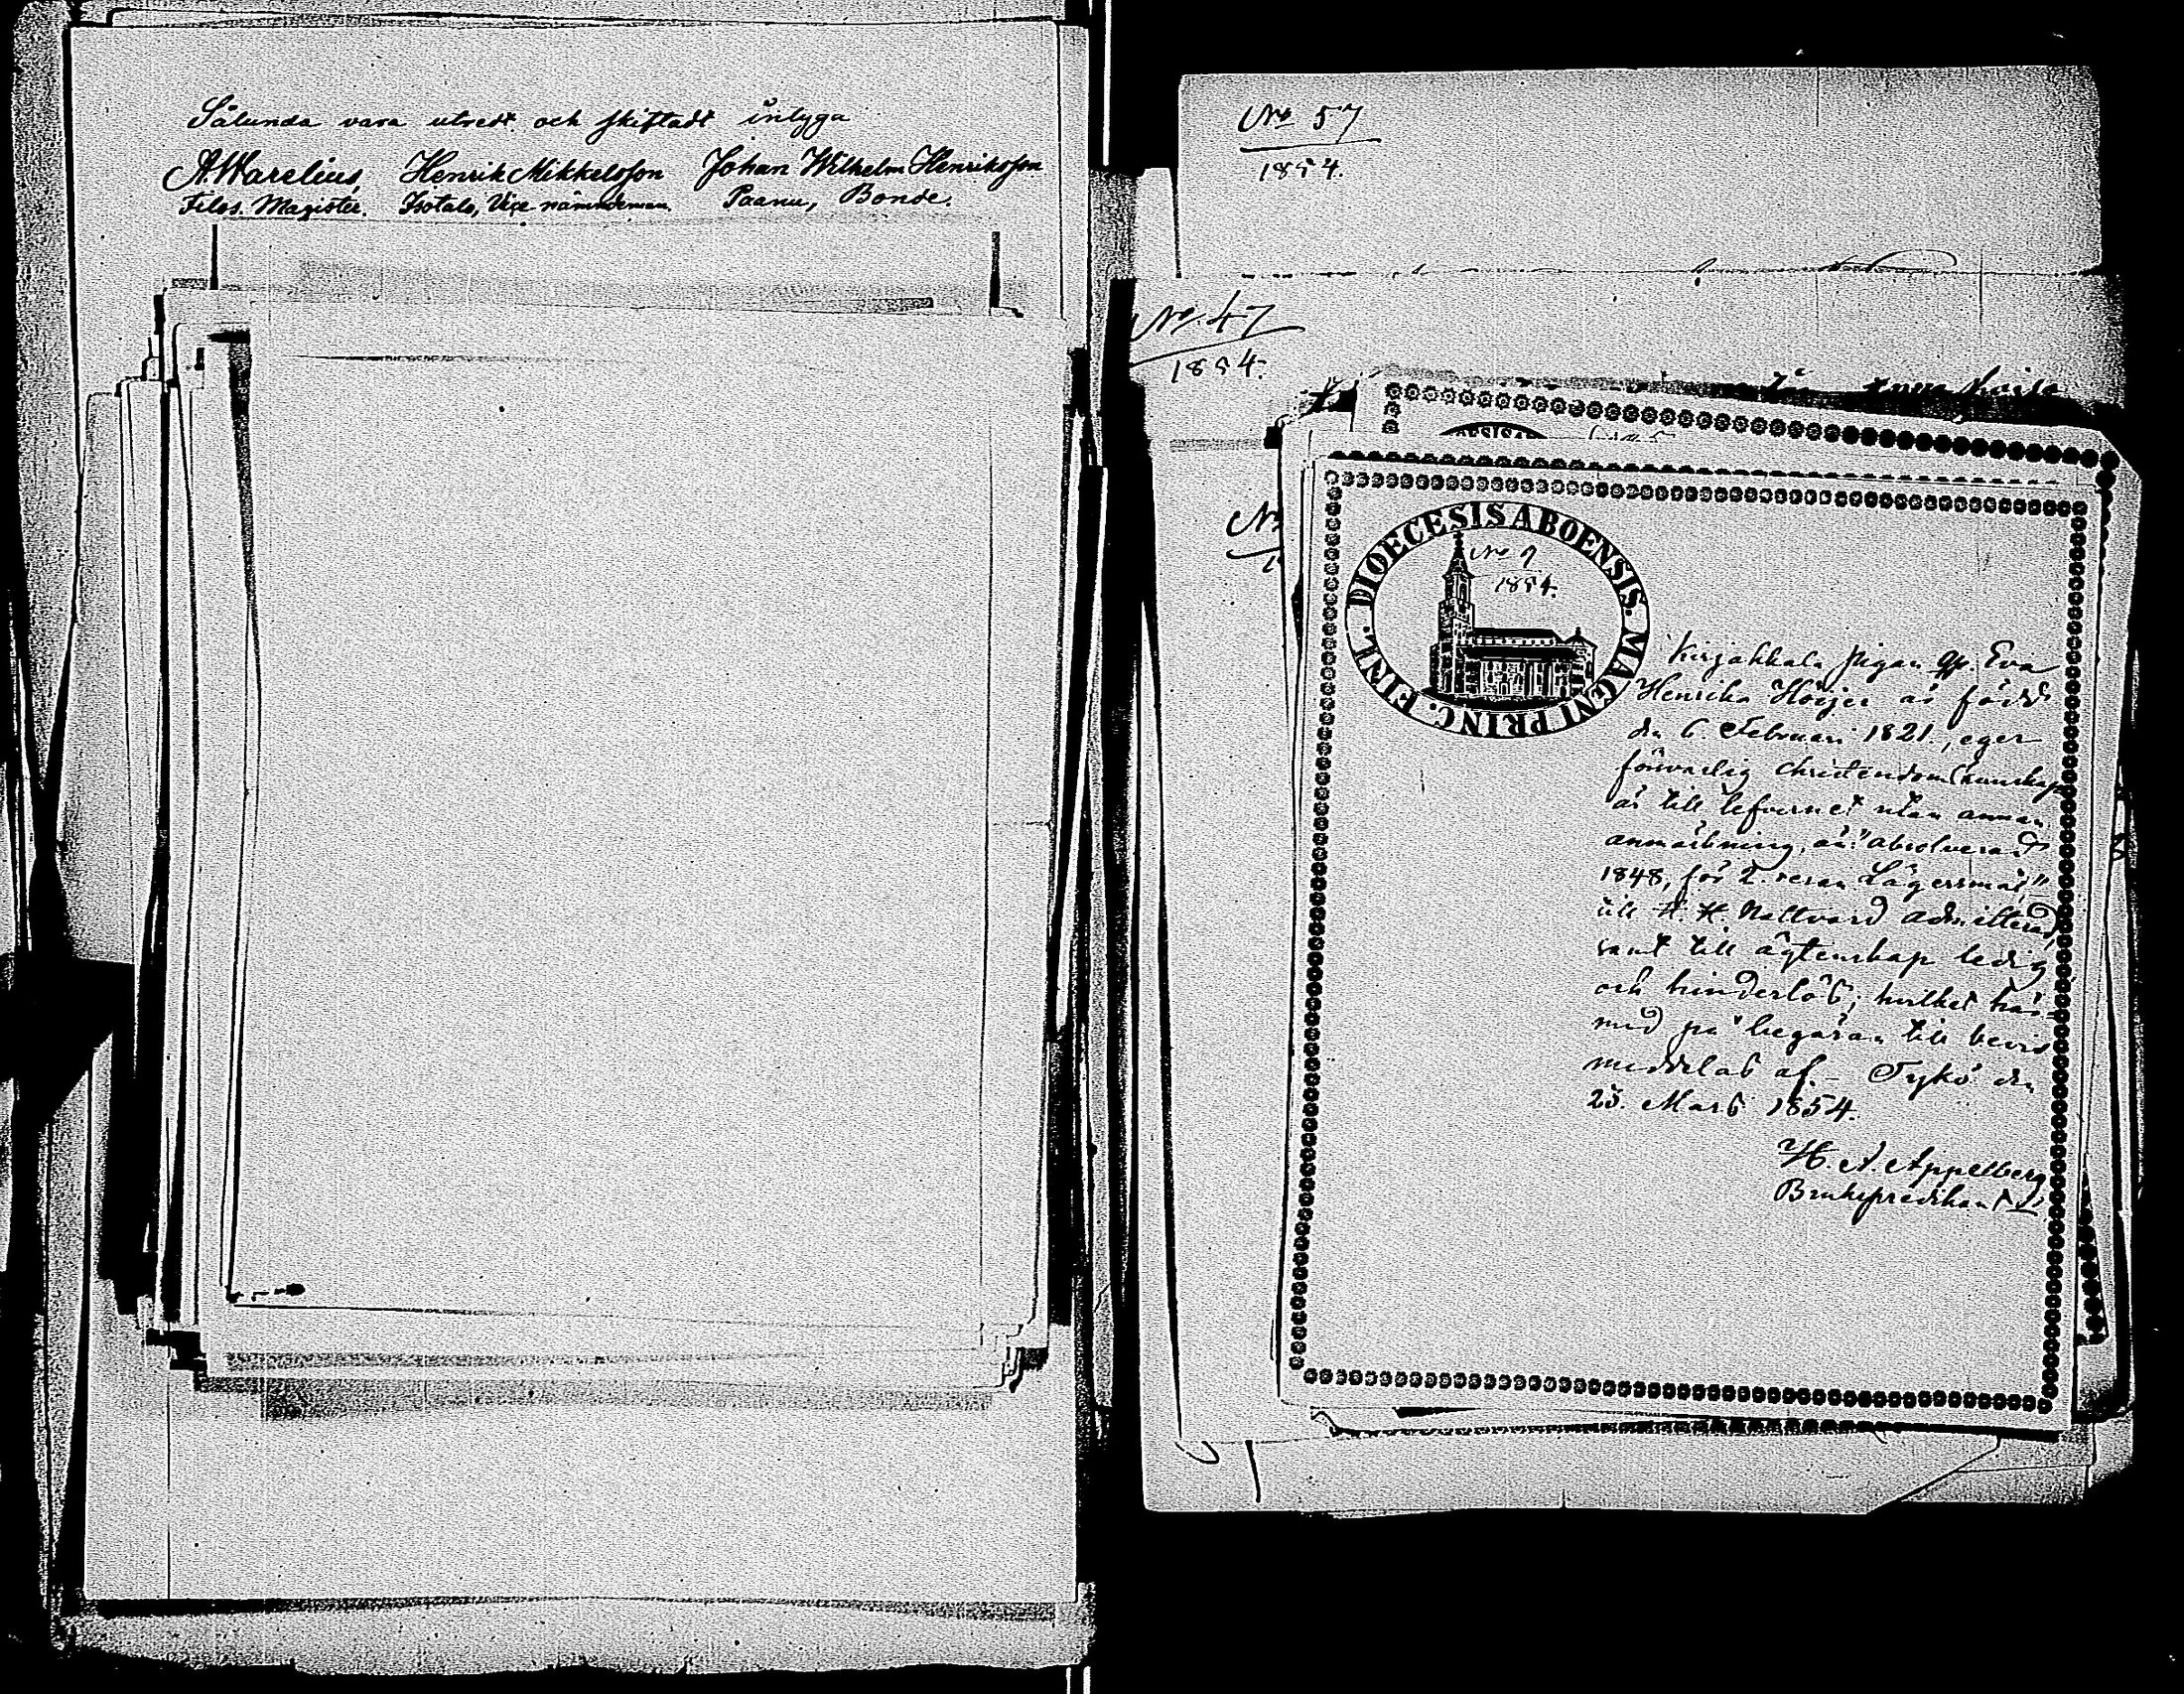 Sålunda vara utredt och skiftadt intyga
A Warelius, Henrik Mikkelsson Johan Wilhelm Henriksson
Filos. Magister. Isotalo, Vice nämndeman. Paanu, Bonde.
No 57
1854.
No. 47
1854.
DIOECESIS ABOENSIS. MAGNI PRINC. FINL.
No 9
1854.
Kirjakkala pigan Eva
Henrika Höijer är född
den 6. Februari 1821., eger
försvarlig christendomskunskap
är till lefvernet utan annan
anmärkning, än: "absolverad
1848, för 2. resan Lägersmål,"
till H. H. Nattvard admitterad,
samt till ägtenskap ledig
och hinderlös; hvilket här-
med på begäran till bevis
meddelas af. - Tykö den
23. Mars 1854.
H. A. Appelberg
Brukspredikant